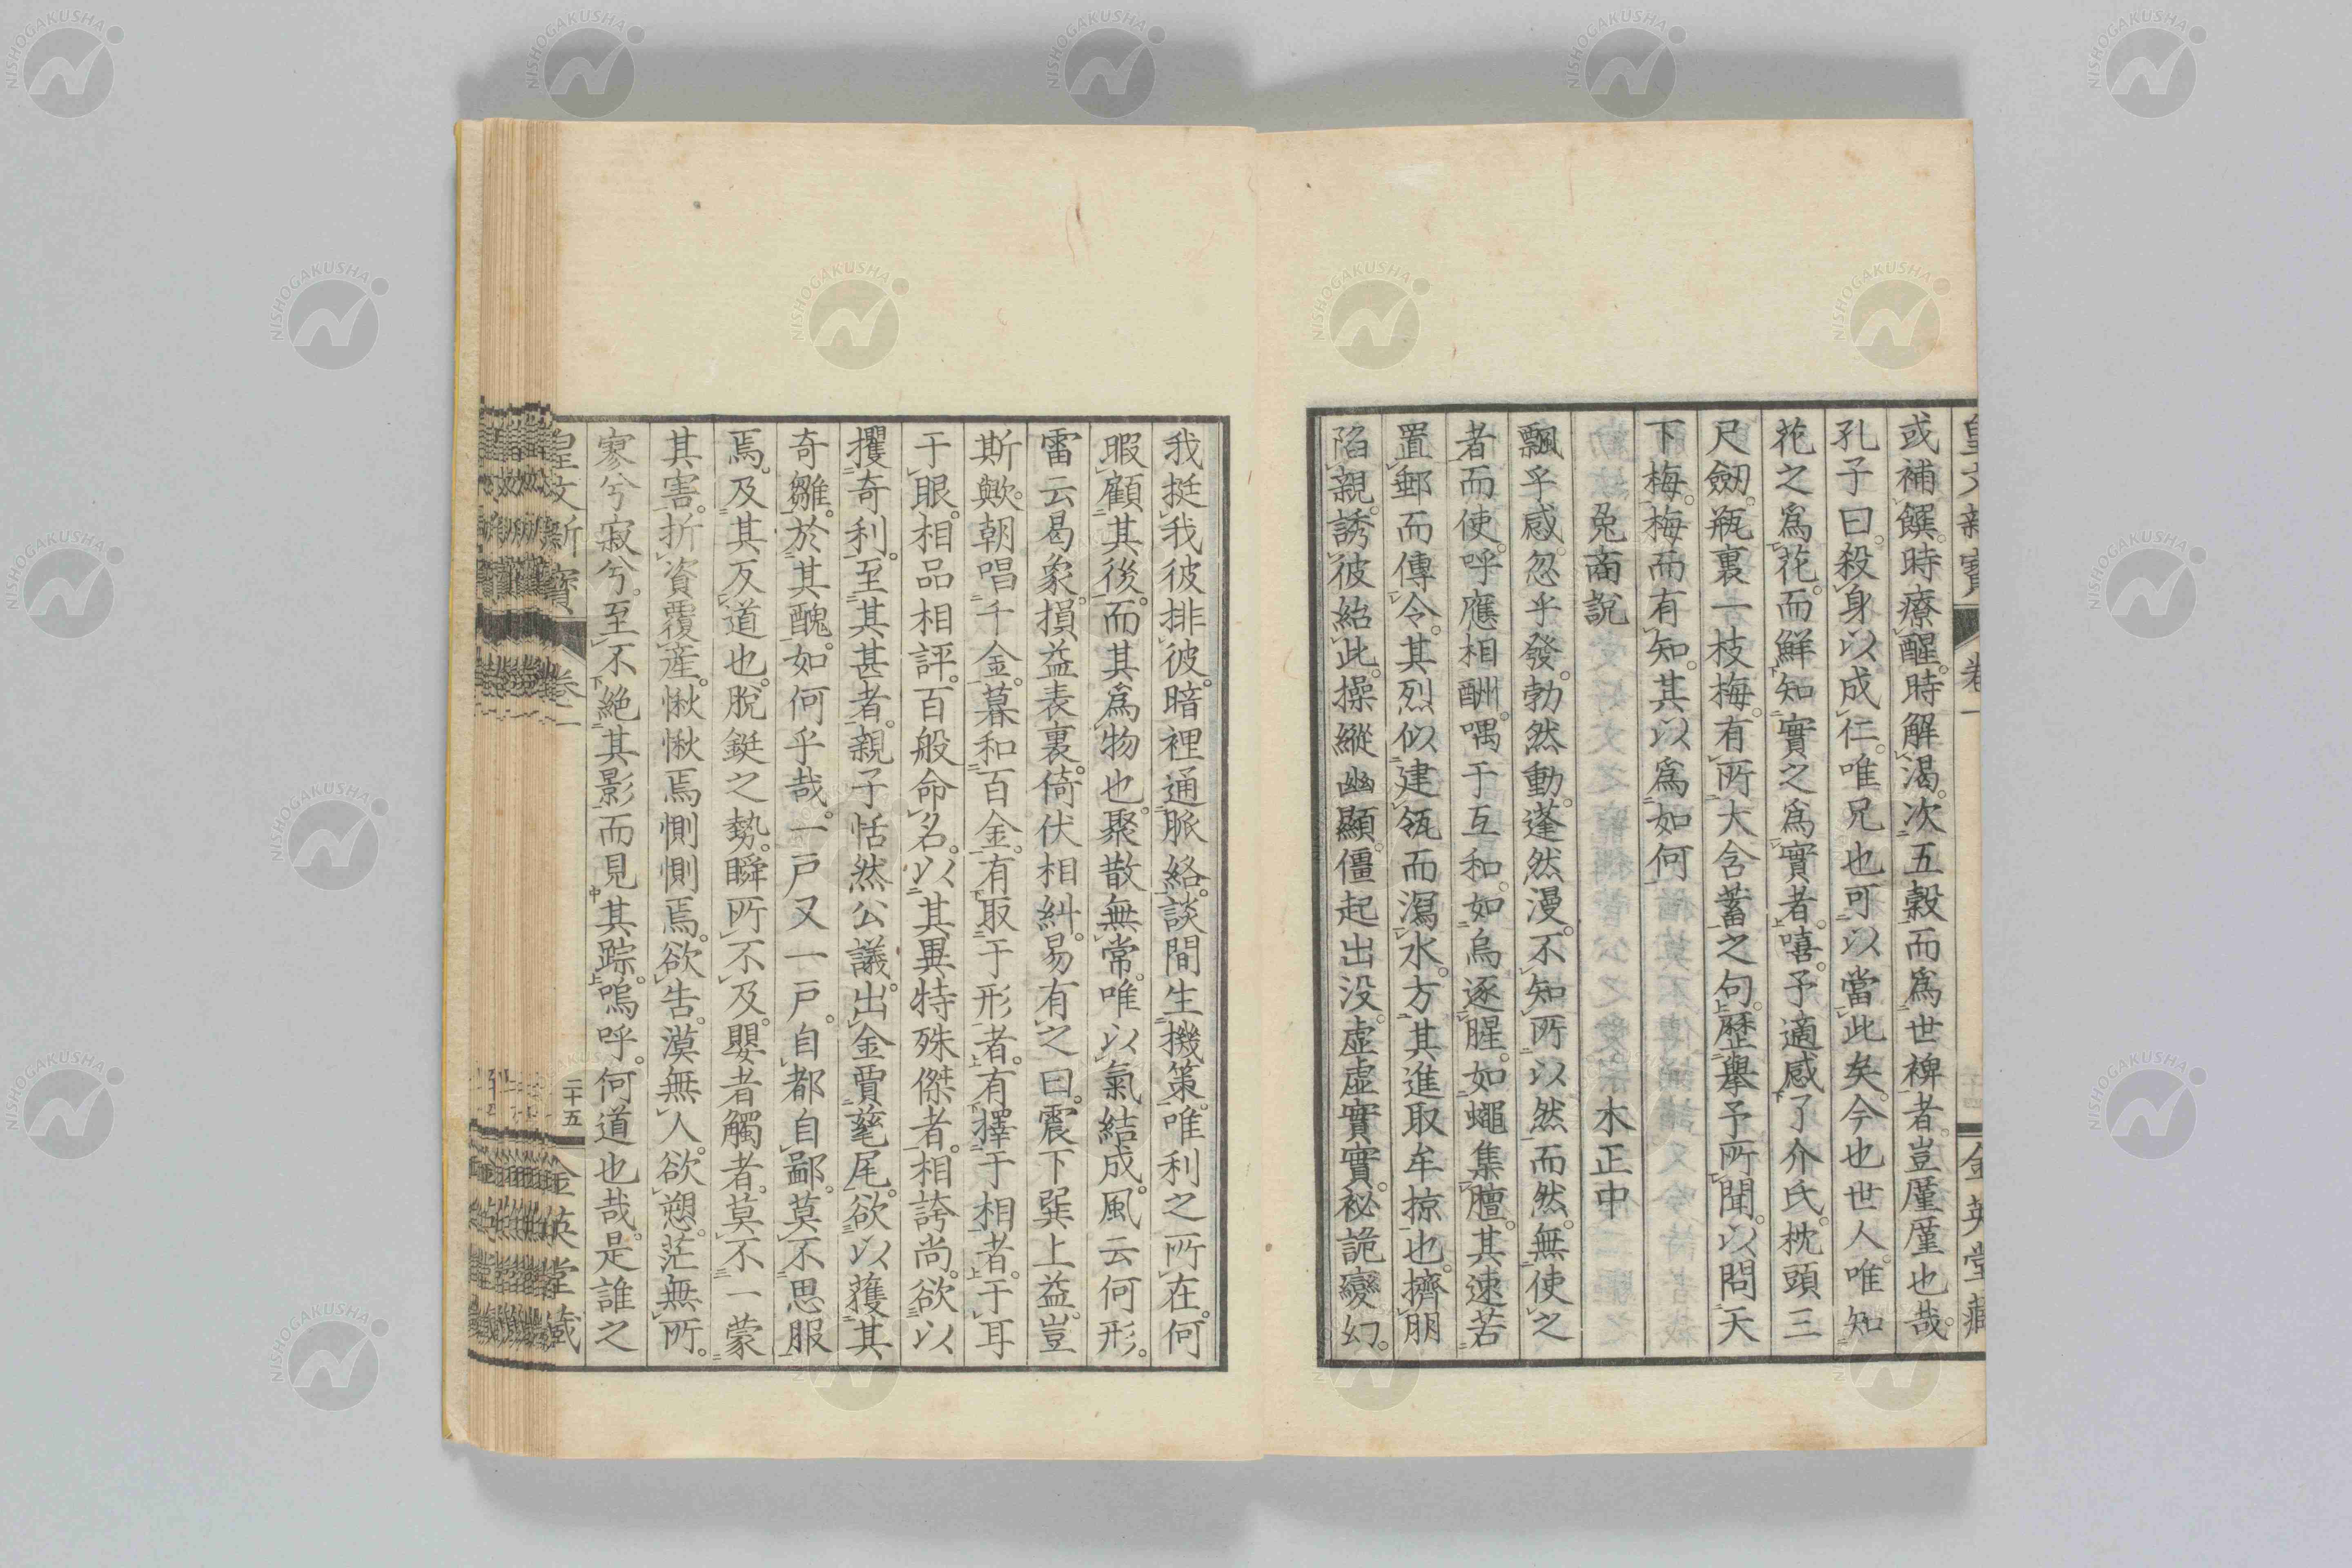 皇文新寶 卷一 金英堂藏
或補饌。時療醒。時解渴。次五穀而爲世裨者。豈厪厪也哉。
孔子曰。殺身以成仁。唯兄也可以當此矣。今也世人。唯知
花之爲花。而鮮知實之爲實者。嘻。予適感了介氏。枕頭三
尺劒。瓶裏一枝梅。有所大含蓄之句。歷擧予所聞。以問天
下梅。梅而有知。其以爲如何
兔商說 木正中
飄乎感。忽乎發。勃然動。蓬然漫。不知所以然而然。無使之
者而使。呼應相酬。喁于互和。如烏逐腥。如蠅集膻。其速若
置郵而傳令。其烈似建瓴而瀉水。方其進取牟掠也。擠朋
陷親。誘彼紿此。操縱幽顯。僵起出没。虛虛實實。祕詭變幻。
我挺我彼排彼。暗裡通脈絡。談間生機策。唯利之所在。何
暇顧其後。而其爲物也。聚散無常。唯以氣結成。風云何形。
雷云曷象。損益表裏。倚伏相糾。易有之曰。震下巽上益。豈
斯歟。朝唱千金。暮和百金。有取于形者。有擇于相者。于耳
于眼。相品相評。百般命名。以其異特殊傑者。相誇尚。欲以
攫奇利。至其甚者。親子恬然公議。出金賈耄尾。欲以獲其
奇雛。於其醜。如何乎哉。一戸又一戸。自都自鄙。莫不思服
焉。及其反道也。脫鋌之勢。瞬所不及。嬰者觸者。莫不一蒙
其害。折資覆產。愀愀焉惻惻焉。欲告。漠無人。欲愬。茫無所。
寥兮寂兮。至不絕其影而見其踪。嗚呼。何道也哉。是誰之
皇文新寶 卷二 二十五 金英堂藏